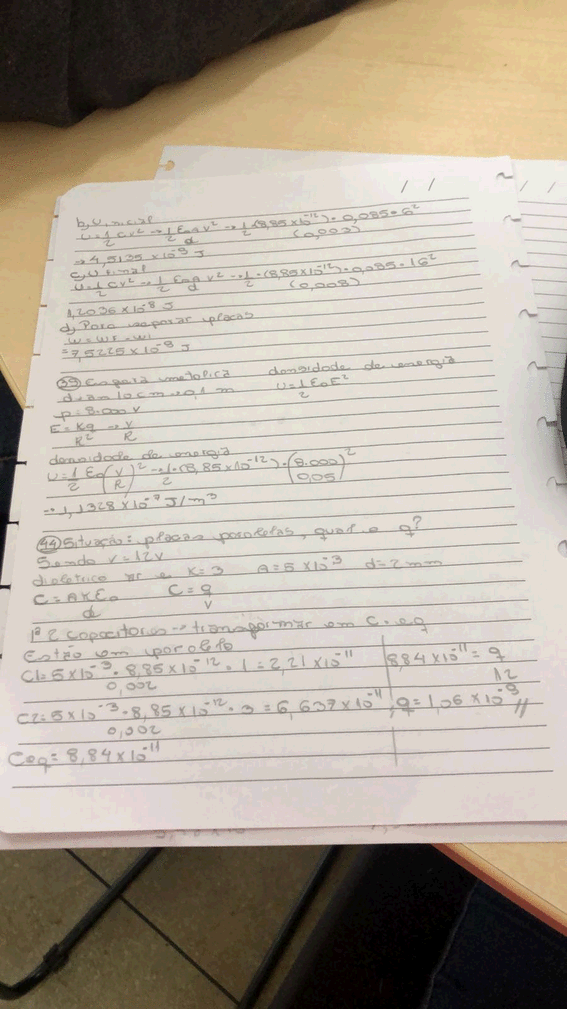 b, U inicial
U = 1/2 CV² → 1/2 ε₀A/d V² → 1/2 · (8,85 x 10⁻¹²) · 0,085 · 6² / (0,003)
→ 4,5135 x 10⁻⁹ J
c, U final
U = 1/2 CV² → 1/2 ε₀A/d V² → 1/2 · (8,85 x 10⁻¹²) · 0,085 · 16² / (0,008)
1,2036 x 10⁻⁸ J
d, Para separar placas
W = Wf - Wi
= 7,5225 x 10⁻⁹ J
Esfera metálica densidade de energia
d = 10 cm → 0,1 m U = 1/2 ε₀E²
p = 8.000 V
E = Kq/R² → V/R
densidade de energia
U = 1/2 ε₀ (V/R)² → 1/2 · (8,85 x 10⁻¹²) · (8.000/0,05)²
→ 1,1328 x 10⁻¹ J/m³
44 Situação: placas paralelas, qual e q?
Sendo V = 12V
dielétrico ar e K = 3 A = 5 x 10⁻³ d = 2 mm
C = AKε₀/d C = q/V
1º 2 capacitores → transformar em C. eq
Estão em paralelo
C1 = 5 x 10⁻³ · 8,85 x 10⁻¹² · 1 / 0,002 = 2,21 x 10⁻¹¹ 8,84 x 10⁻¹¹ = q/12
C2 = 5 x 10⁻³ · 8,85 x 10⁻¹² · 3 / 0,002 = 6,637 x 10⁻¹¹ q = 1,06 x 10⁻⁹ //
Ceq = 8,84 x 10⁻¹¹